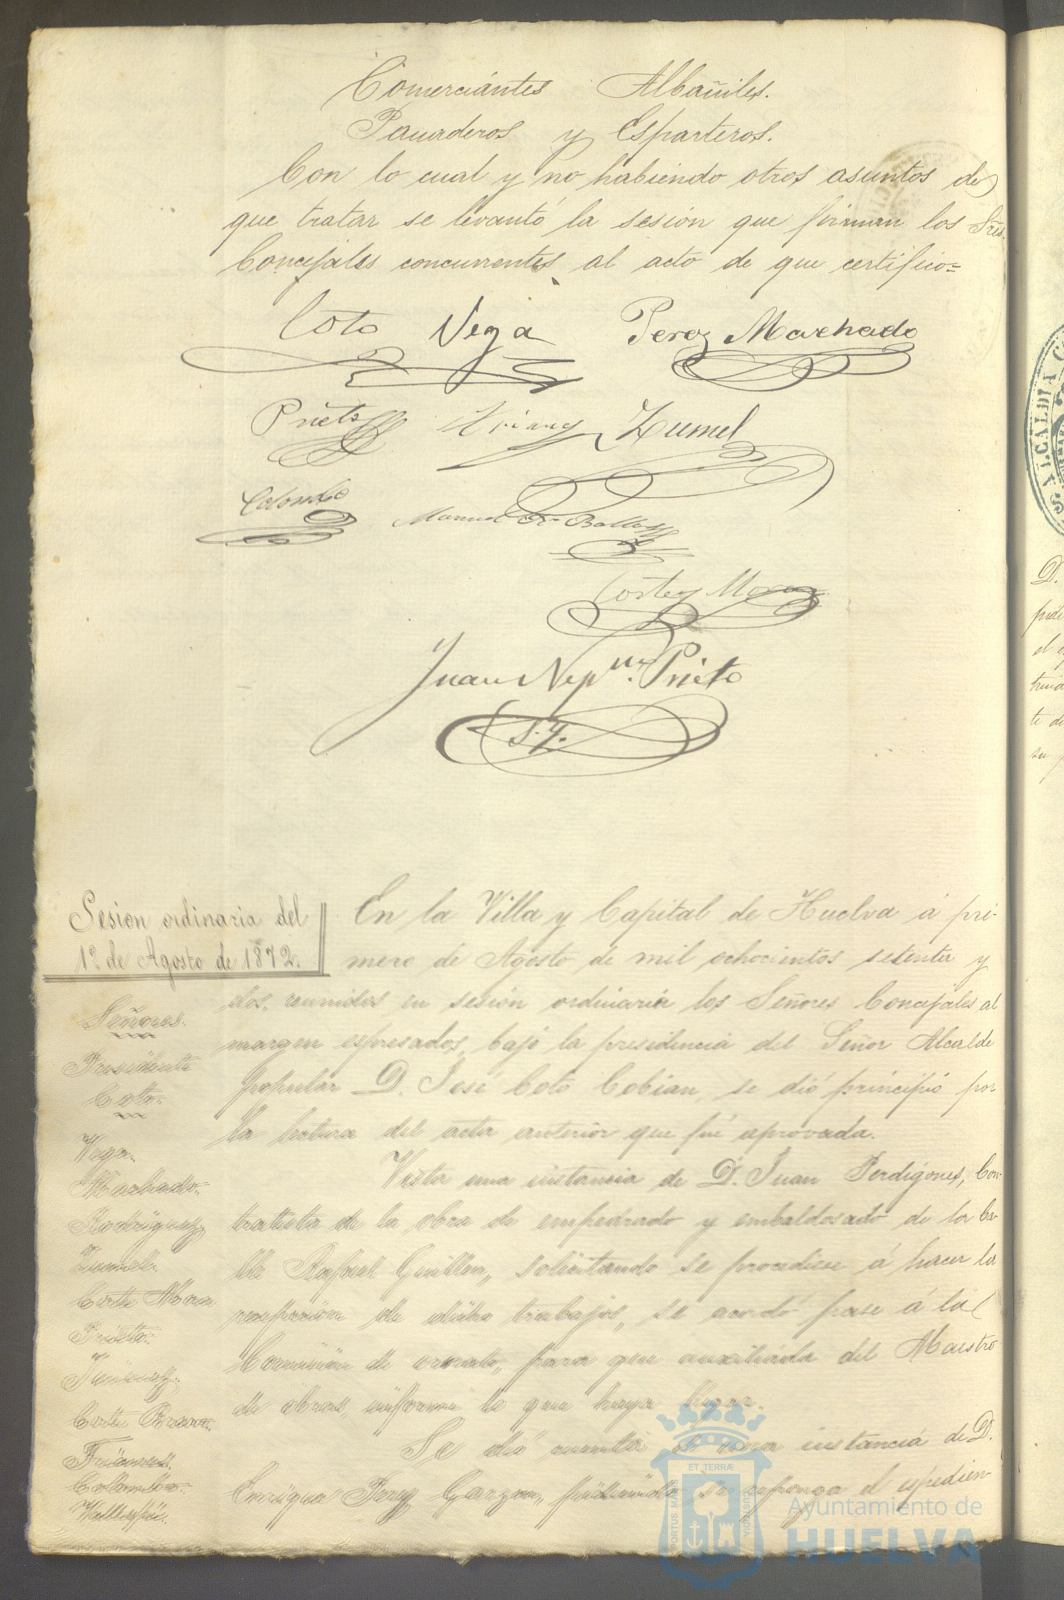 Comerciántes Albañiles.
Panaderos y Esparteros.
Con lo cual y no habiendo otros asuntos de
que tratar se levantó la sesión que firman los Sres.
Concejales concurrentes al acto de que certifico=
Coto Vega Perez Machado
Prieto Zumel
Colombo Manuel
Cortes Mora
Juan Nepno. Prieto
S. I.
Sesion ordinaria del
1º de Agosto de 1872.
Señores.
Presidente
Coto.
Vega.
Machado.
Rodriguez
Zumel.
Corte Mora
Prieto.
Jimenez.
Corte Bravo.
Colombo.
En la Villa y Capital de Huelva á pri-
mero de Agosto de mil ochocientos setenta y
dos, reunidos en sesión ordinaria los Señores Concejales al
margen espresados, bajo la presidencia del Señor Alcalde
popular D. José Coto Cobian, se dió principio por
la lectura del acta anterior que fué aprovada.
Vista una instancia de D. Juan Perdigones, Con-
tratista de la obra de empedrado y embaldosado de la Ca-
lle Rafael Guillen, solicitando se procediese á hacer la
recepcion de dichos trabajos, se acordó pase á la
Comisión de ornato, para que auxiliada del Maestro
de obras, informe lo que haya lugar.
Se dió cuenta de una instancia de D.
Enrique Perez Garzon, pidiendo se esponga el espedien-
ALCALDIA
PORTUS MARIS ET TERRÆ CUSTODIA
Ayuntamiento de
HUELVA